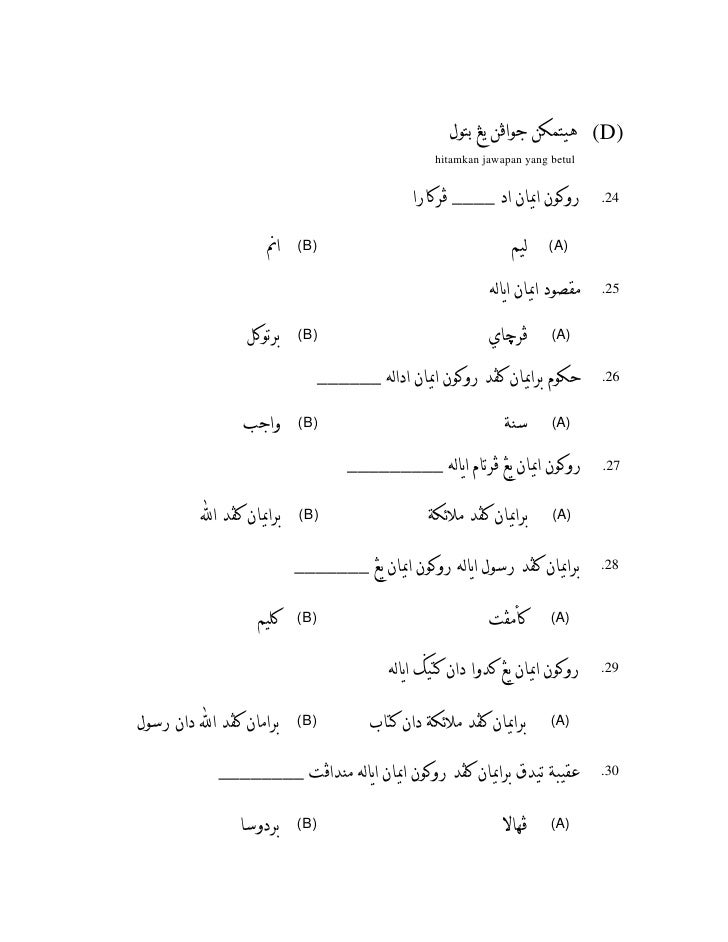 (D) هيتمكن جواڤن يڠ بتول
hitamkan jawapan yang betul
24. روكون ايمان اد ____ ڤركارا
(A) ليم (B) انم
25. مقصود ايمان اياله
(A) ڤرچاي (B) برتوكل
26. حكوم برايمان كڤد روكون ايمان اداله ______
(A) سنة (B) واجب
27. روكون ايمان يڠ ڤرتام اياله _________
(A) برايمان كڤد ملائكة (B) برايمان كڤد الله
28. برايمان كڤد رسول اياله روكون ايمان يڠ _______
(A) كأمڤت (B) كليم
29. روكون ايمان يڠ كدوا دان كتيݢ اياله
(A) برايمان كڤد ملائكة دان كتاب (B) برامان كڤد الله دان رسول
30. عقيبة تيدق برايمان كڤد روكون ايمان اياله منداڤت ________
(A) ڤهالا (B) بردوسا